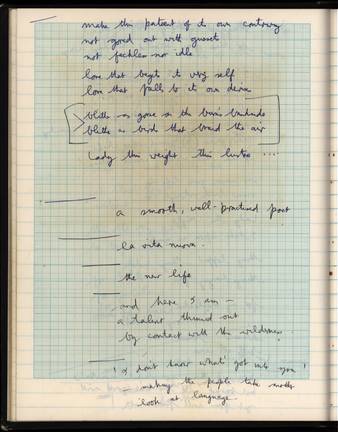 make this patient of its own contriving
not gored out with gussets
not feckless nor idle
love that begets its very self
love that pulls to its own desire
blithe as goose in the
blithe as birds that braid the air
Lady this weight this lustre ....
a smooth, well-practised poet
la vita nuova.
the new life
and here I am —
a talent thinned out
by contact with the wilderness
'I don't know what's got into you'
— making the people take another
look at language.